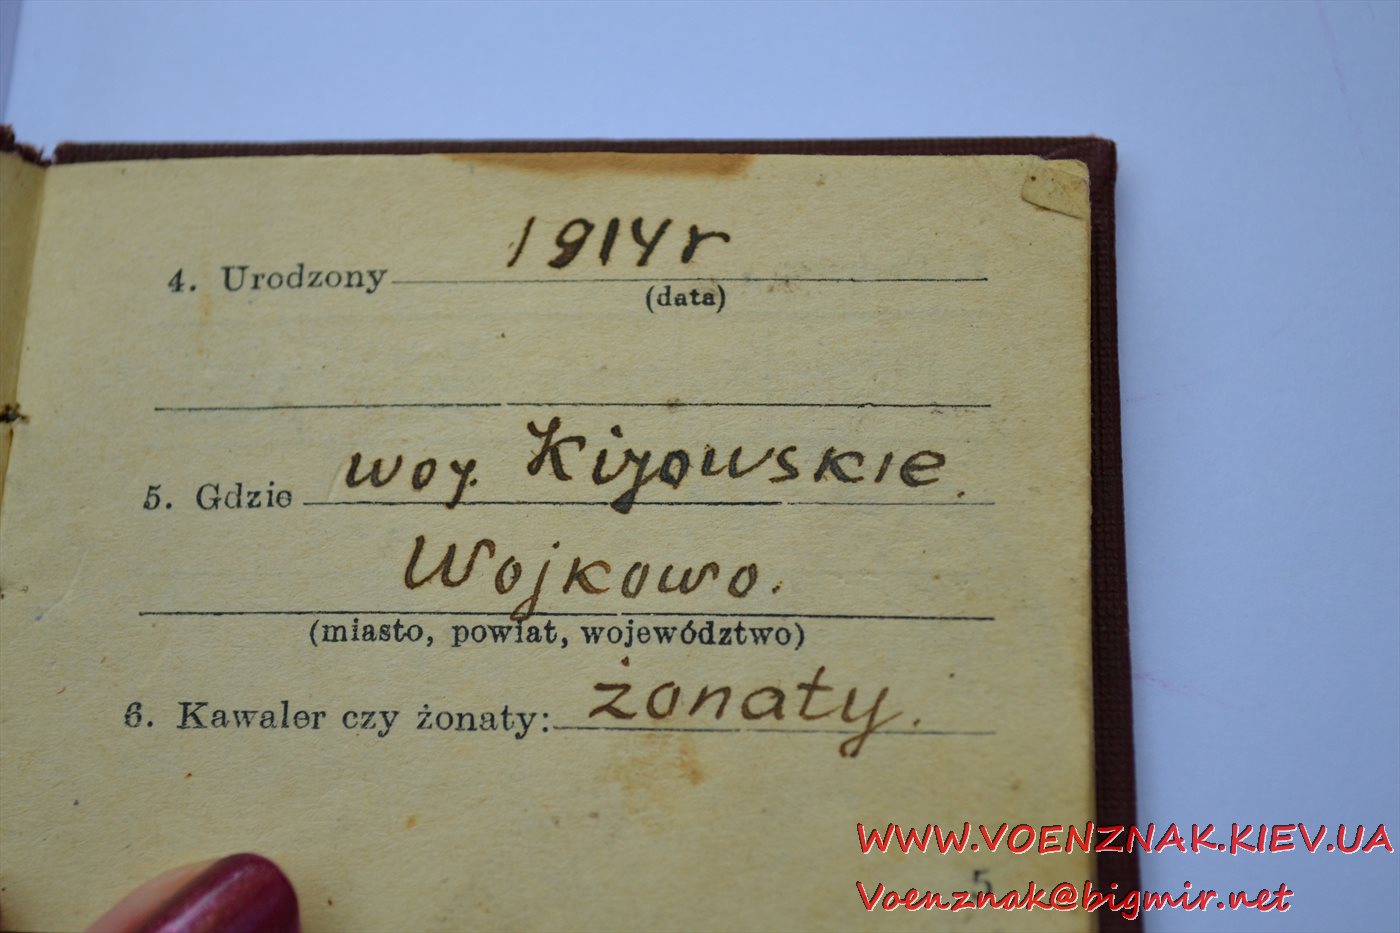 1914 r
4. Urodzony
(data)
woj. Kijowskie.
5. Gdzie
Wojkowo.
(miasto, powiat, województwo)
6. Kawaler czy żonaty: żonaty.
5
WWW.VOENZNAK.KIEV.UA
Voenznak@bigmir.net